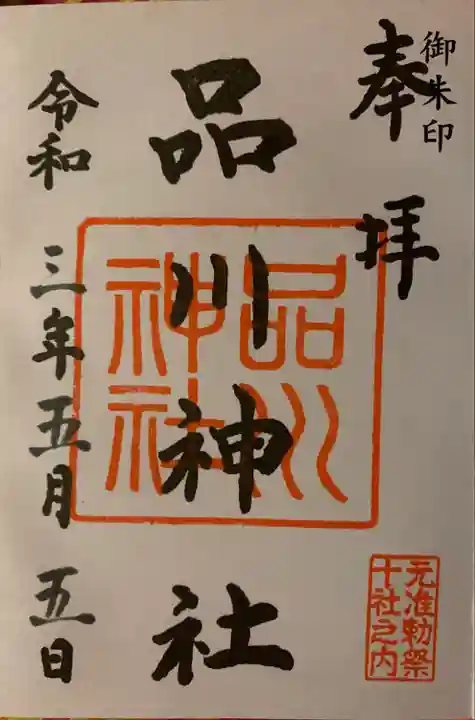 御朱印
奉拝
品川神社
品川
神社
元准勅祭
十社之内
令和 三年 五月 五日